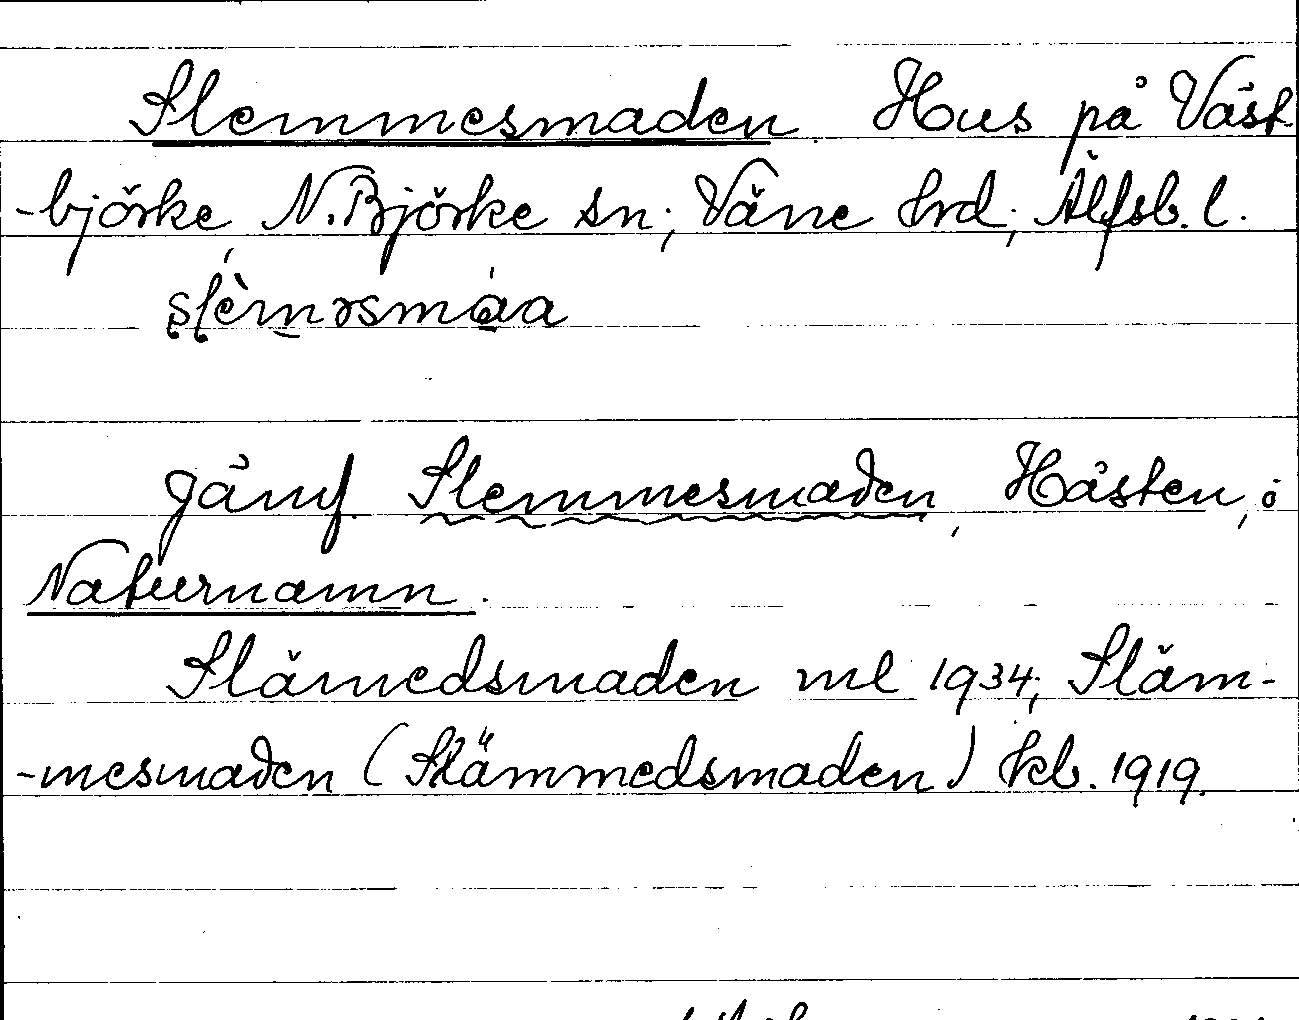 Slemmesmaden Hus på Väst-
-björke, N. Björke sn; Väne hrd; Älfsb. l.
slèmǝsmáa
Jämf. Slemmesmaden, Hästen, i
Naturnamn.
Slämedsmaden ml 1934; Släm-
-mesmaden (Slämmedsmaden) kb. 1919.